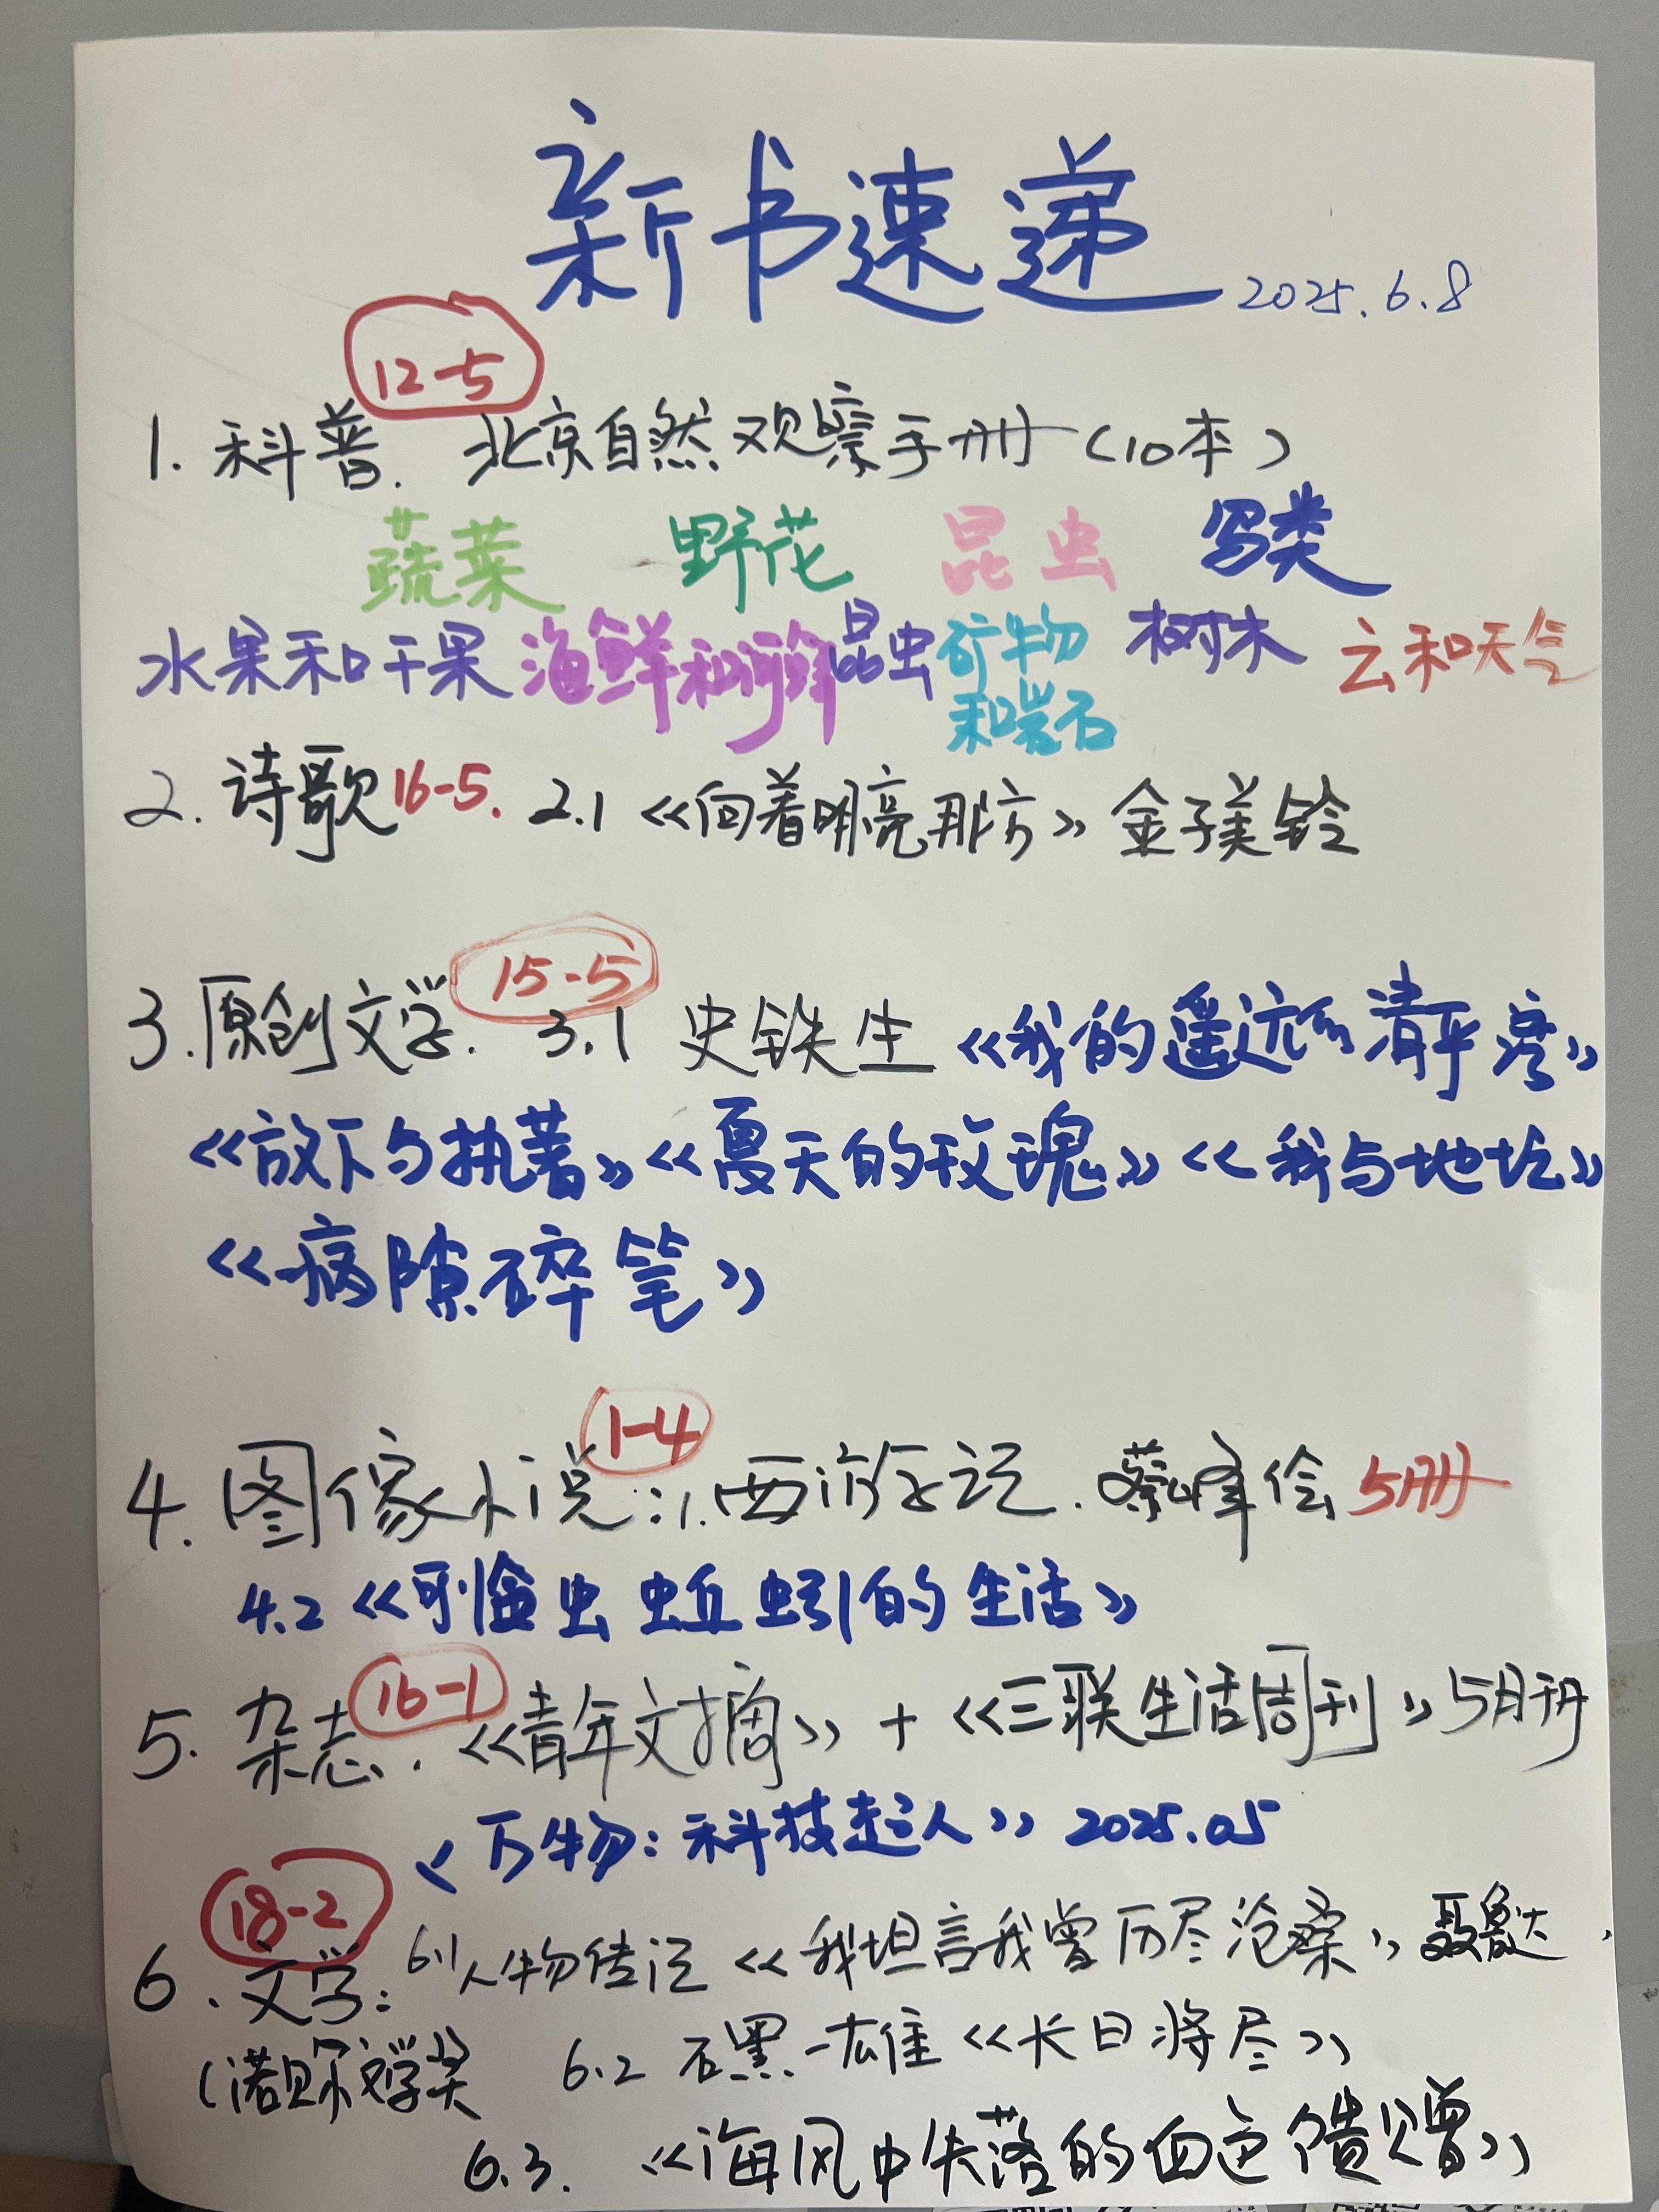 新书速递 2025.6.8
12-5
1. 科普. 北京自然观察手册（10本）
蔬菜 野花 昆虫 鸟类
水果和干果 海鲜和河鲜 昆虫 矿物 树木 云和天气
和岩石
2. 诗歌 16-5. 2.1《向着明亮那方》金子美铃
15-5
3. 原创文学. 3.1 史铁生《我的遥远的清平湾》
《放下与执著》《夏天的玫瑰》《我与地坛》
《病隙碎笔》
1-4
4. 图像小说：1. 西游记. 蔡峰绘 5册
4.2《可怜虫蚯蚓的生活》
16-1
5. 杂志.《青年文摘》+《三联生活周刊》5月刊
〈万物：科技超人》2025.05
18-2
6. 文学：6.1 人物传记《我坦言我曾历尽沧桑》聂鲁达.
（诺贝尔文学奖 6.2 石黑一雄《长日将尽》
6.3.《海风中失落的血色馈赠》